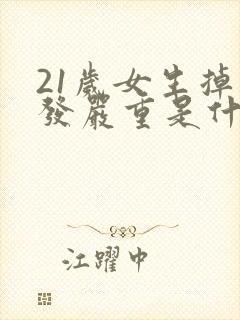 21歲女生掉
發嚴重是什
江躍中